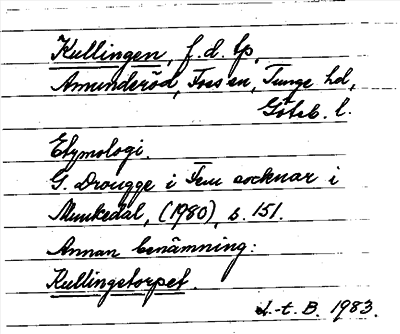 Kullingen, f.d. lp,
Amunderöd, Foss sn, Tunge hd,
Göteb. l.
Etymologi.
G. Drougge i Fem socknar i
Munkedal, (1980), s. 151.
Annan benämning:
Kullingetorpet.
L.-t. B. 1983.